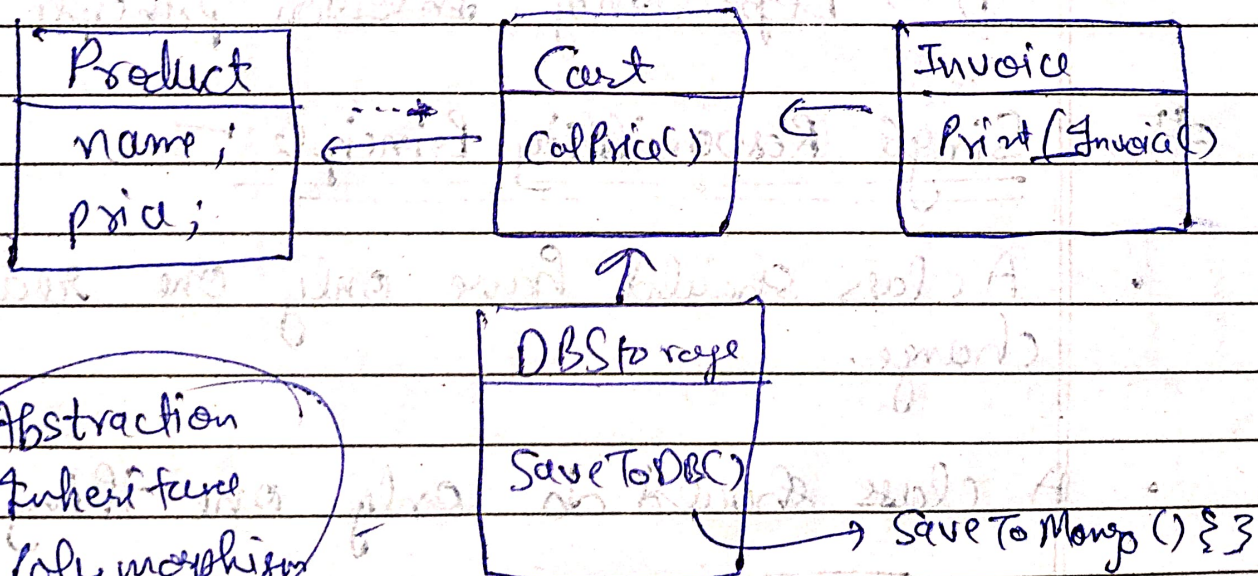 Product
name;
price;
Cart
CalPrice()
Invoice
Print Invoice()
DBStorage
SaveToDB()
SaveToMongo () { }
Abstraction
Inheritance
Polymorphism